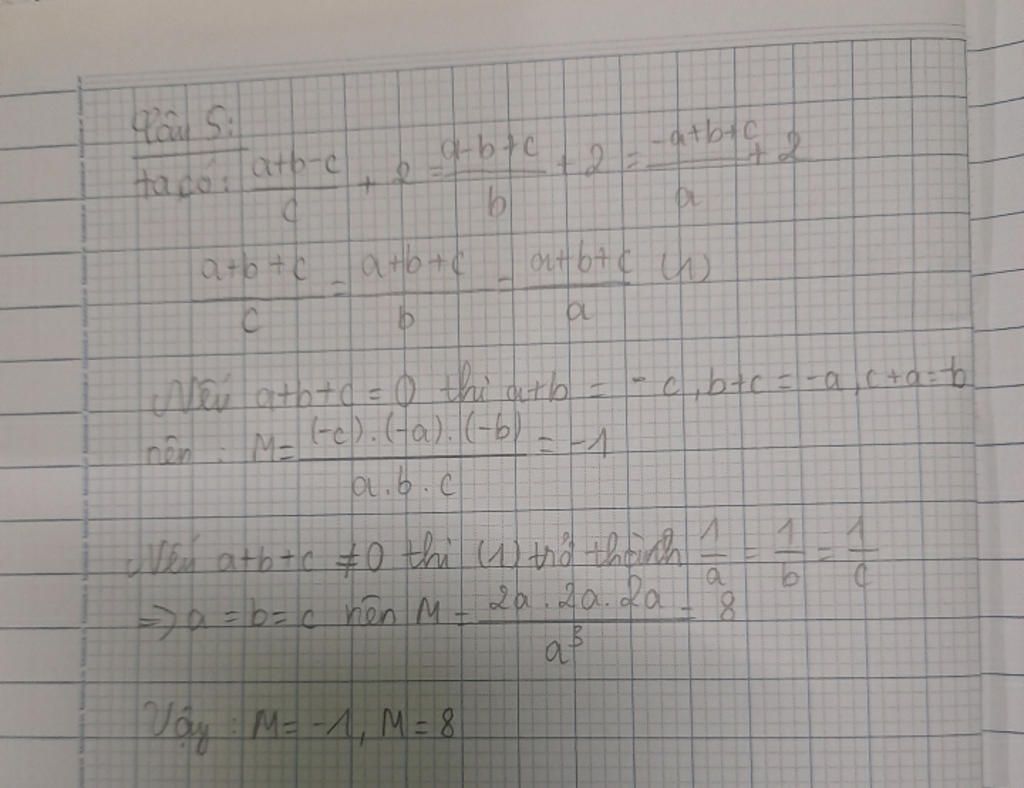 Câu 5:
ta có: \frac{a+b-c}{c} + 2 = \frac{a-b+c}{b} + 2 = \frac{-a+b+c}{a} + 2
\frac{a+b+c}{c} = \frac{a+b+c}{b} = \frac{a+b+c}{a} (1)
Nếu a+b+c=0 thì a+b = -c, b+c = -a, c+a=-b
nên: M = \frac{(-c).(-a).(-b)}{a.b.c} = -1
Nếu a+b+c ≠0 thì (1) trở thành \frac{1}{a} = \frac{1}{b} = \frac{1}{c}
=> a=b=c nên M = \frac{2a.2a.2a}{a^3} = 8
Vậy: M= -1, M=8